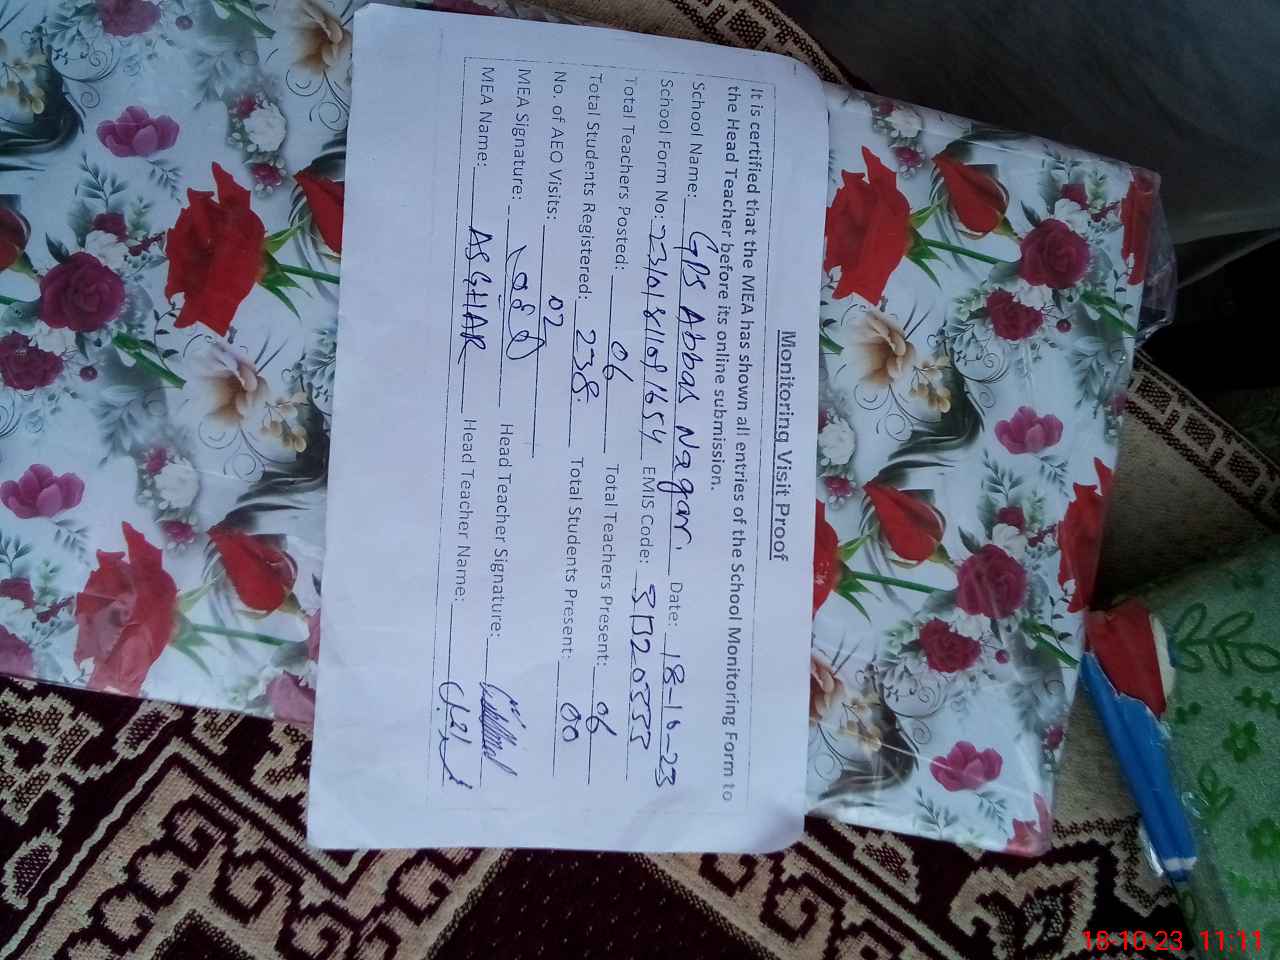 Monitoring Visit Proof
It is certified that the MEA has shown all entries of the School Monitoring Form to
the Head Teacher before its online submission.
School Name: GPS Abbas Nagar. Date: 18-10-23
School Form No: EMIS Code:
Total Teachers Posted: 06 Total Teachers Present: 06
Total Students Registered: 238. Total Students Present: 00
No. of AEO Visits: 02
MEA Signature: Head Teacher Signature:
MEA Name: ASGHAR Head Teacher Name:
18-10-23 11:11